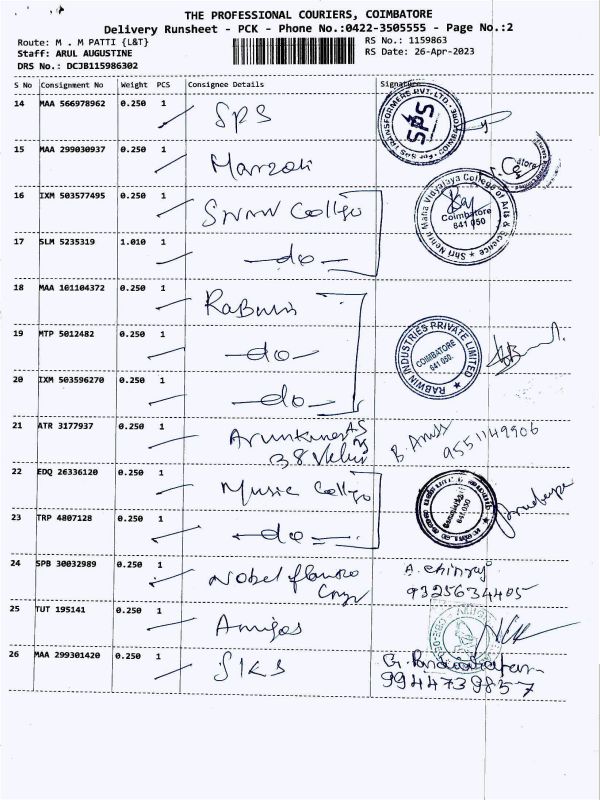 THE PROFESSIONAL COURIERS, COIMBATORE
Delivery Runsheet - PCK - Phone No.:0422-3505555 - Page No.:2
Route: M . M PATTI {L&T} RS No.: 1159863
Staff: ARUL AUGUSTINE RS Date: 26-Apr-2023
DRS No.: DCJB115986302
S No Consignment No Weight PCS Consignee Details Signature
14 MAA 566978962 0.250 1 SPS
TRANSFORMERS PVT. LTD. For SPS COIMBATORE SPS
15 MAA 299030937 0.250 1
16 IXM 503577495 0.250 1 SNMV College
Shri Nehru Maha Vidyalaya College of Arts & Science Coimbatore 641 050
17 SLM 5235319 1.010 1 -do-
18 MAA 101104372 0.250 1 Rabwin
19 MTP 5012482 0.250 1 -do-
RABWIN INDUSTRIES PRIVATE LIMITED COIMBATORE 641 050.
20 IXM 503596270 0.250 1 -do-
21 ATR 3177937 0.250 1 Arunkumar
9551149906
22 EDQ 26336120 0.250 1 Music College
23 TRP 4807128 0.250 1 -do-
24 SPB 30032989 0.250 1 Nobel
9325634405
25 TUT 195141 0.250 1 Amigos
26 MAA 299301420 0.250 1 SIKS
9944739857